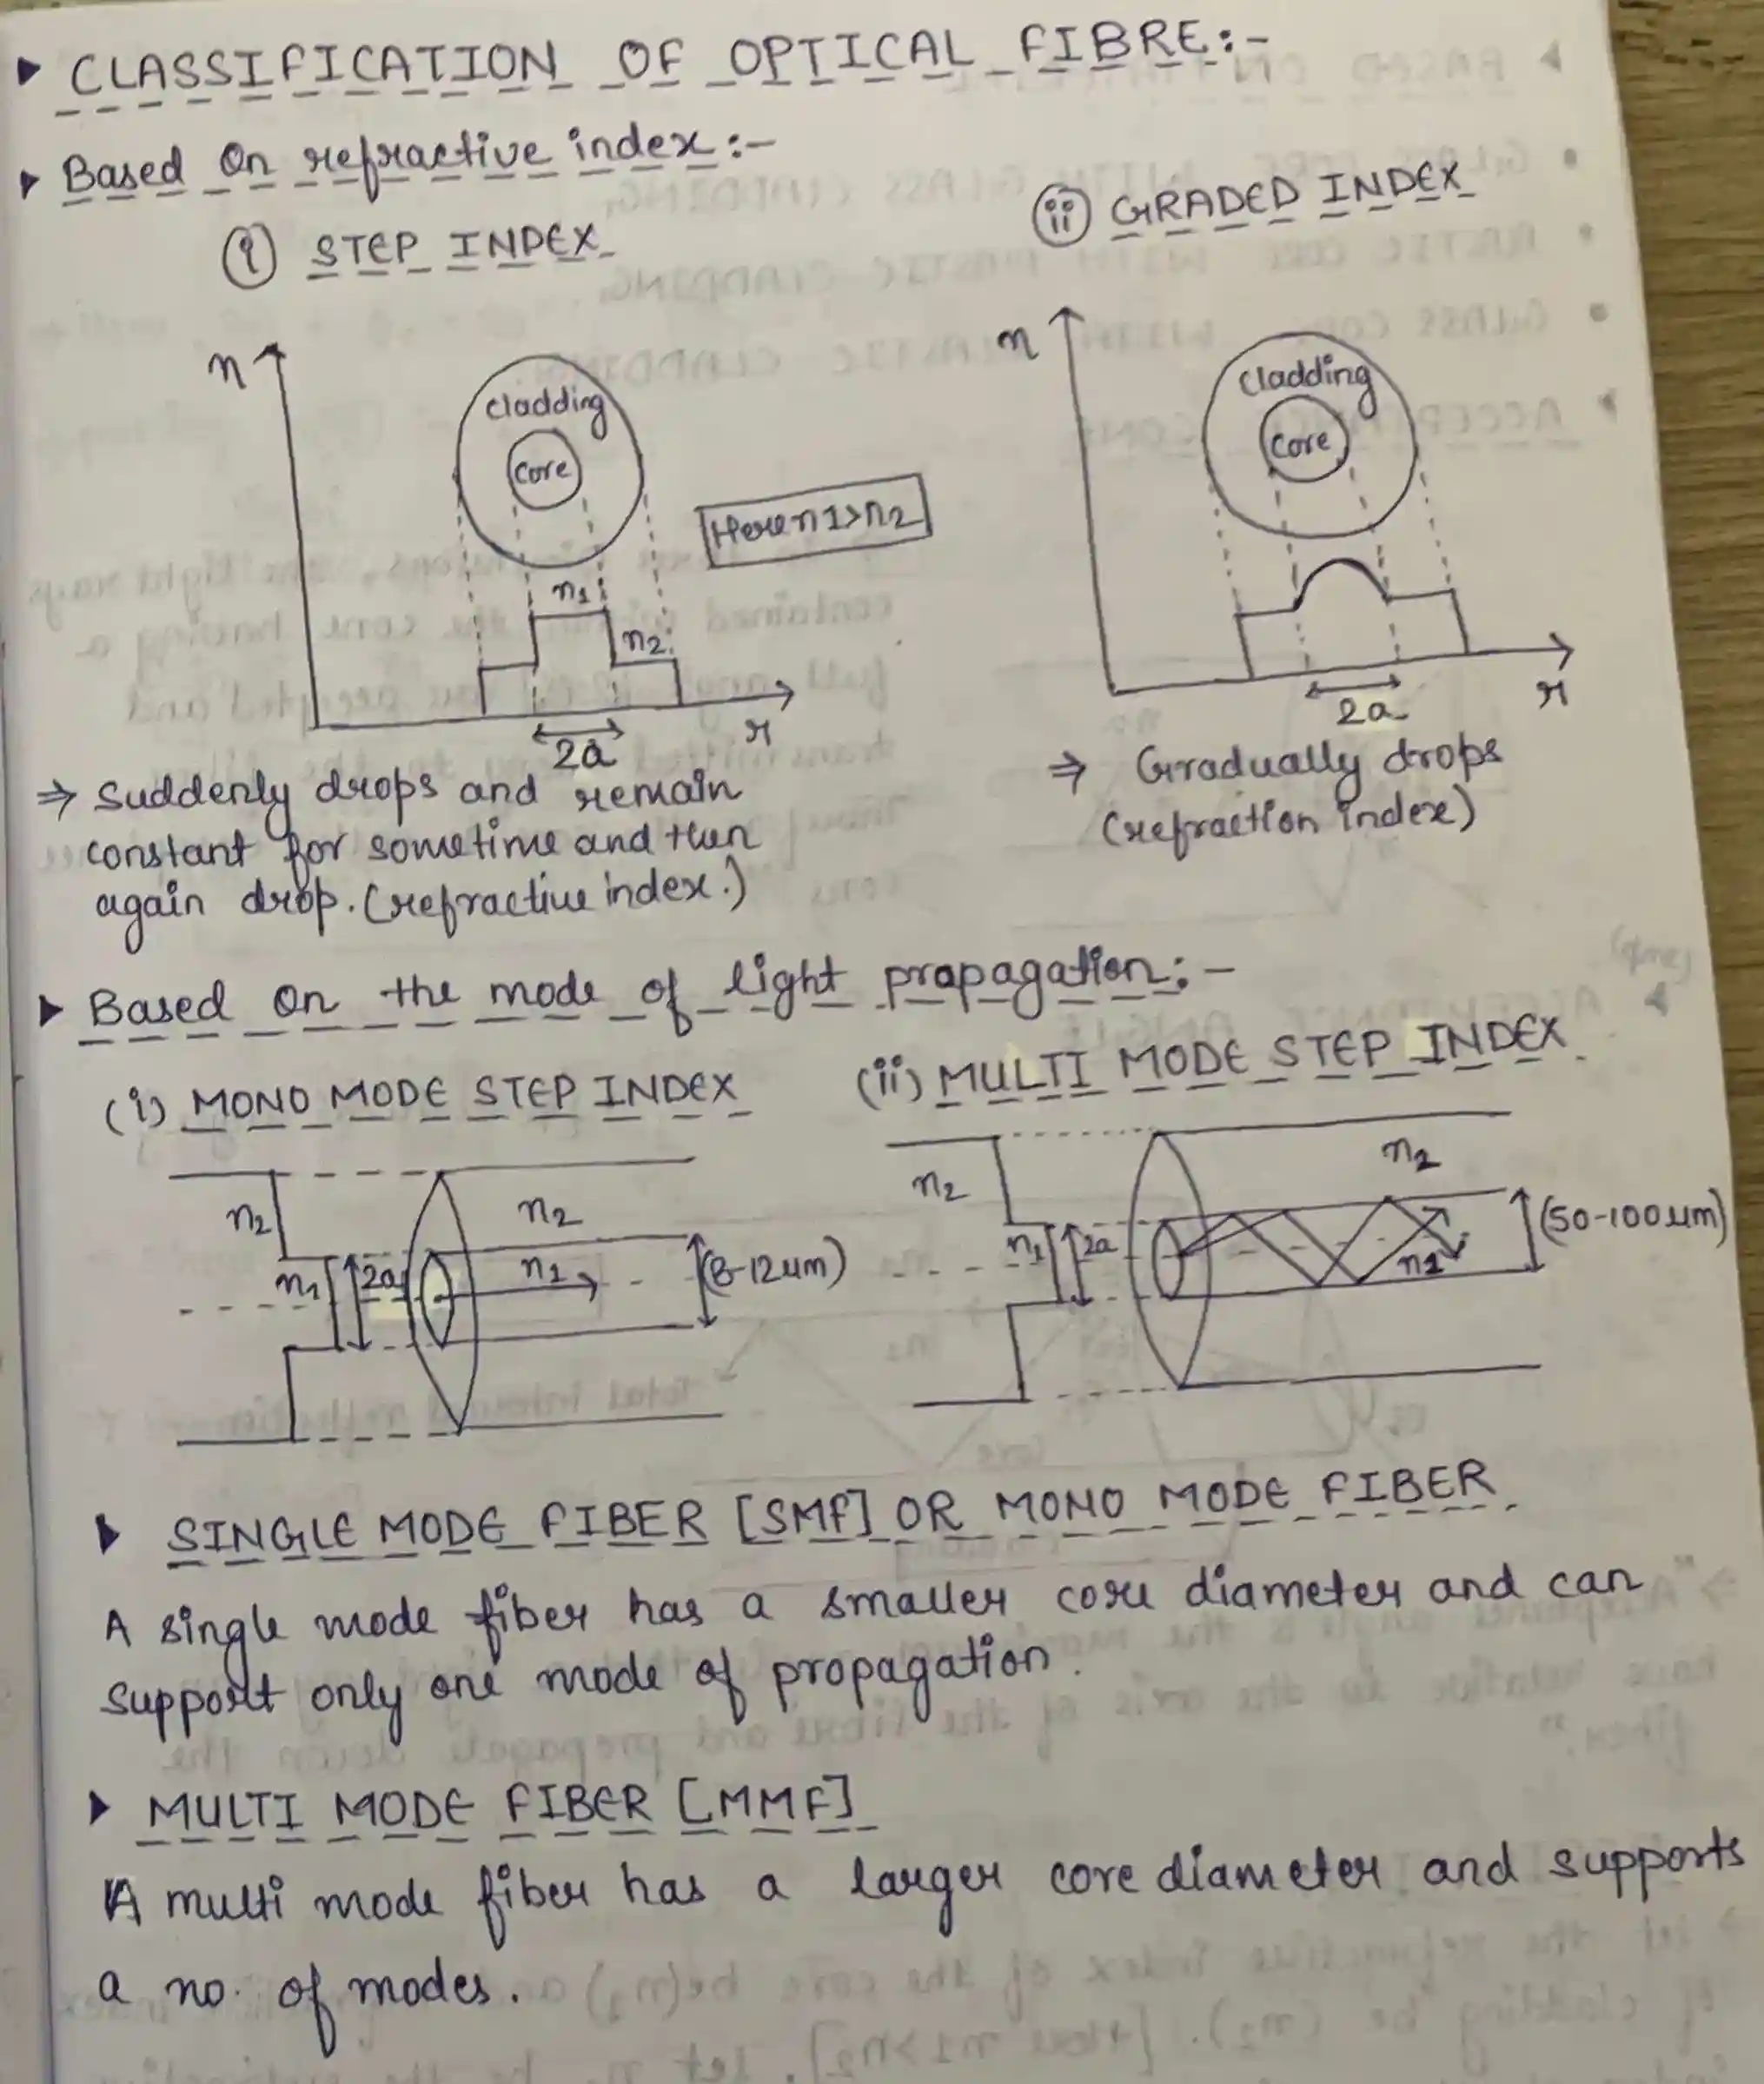 ▸ CLASSIFICATION OF OPTICAL FIBRE:-
▸ Based On refractive index:-
(i) STEP INDEX
(ii) GRADED INDEX
n
cladding
core
n1
n2
2a
r
Here n1>n2
n
cladding
core
2a
r
⇒ Suddenly drops and remain
constant for sometime and then
again drop. (refractive index.)
⇒ Gradually drops
(refraction index)
▸ Based on the mode of light propagation:-
(i) MONO MODE STEP INDEX
(ii) MULTI MODE STEP INDEX
n2
n2
n1
2a
n1
(8-12um)
n2
n2
n1
2a
n1
(50-100um)
▸ SINGLE MODE FIBER [SMF] OR MONO MODE FIBER
A single mode fiber has a smaller core diameter and can
support only one mode of propagation.
▸ MULTI MODE FIBER [MMF]
A multi mode fiber has a larger core diameter and supports
a no. of modes.